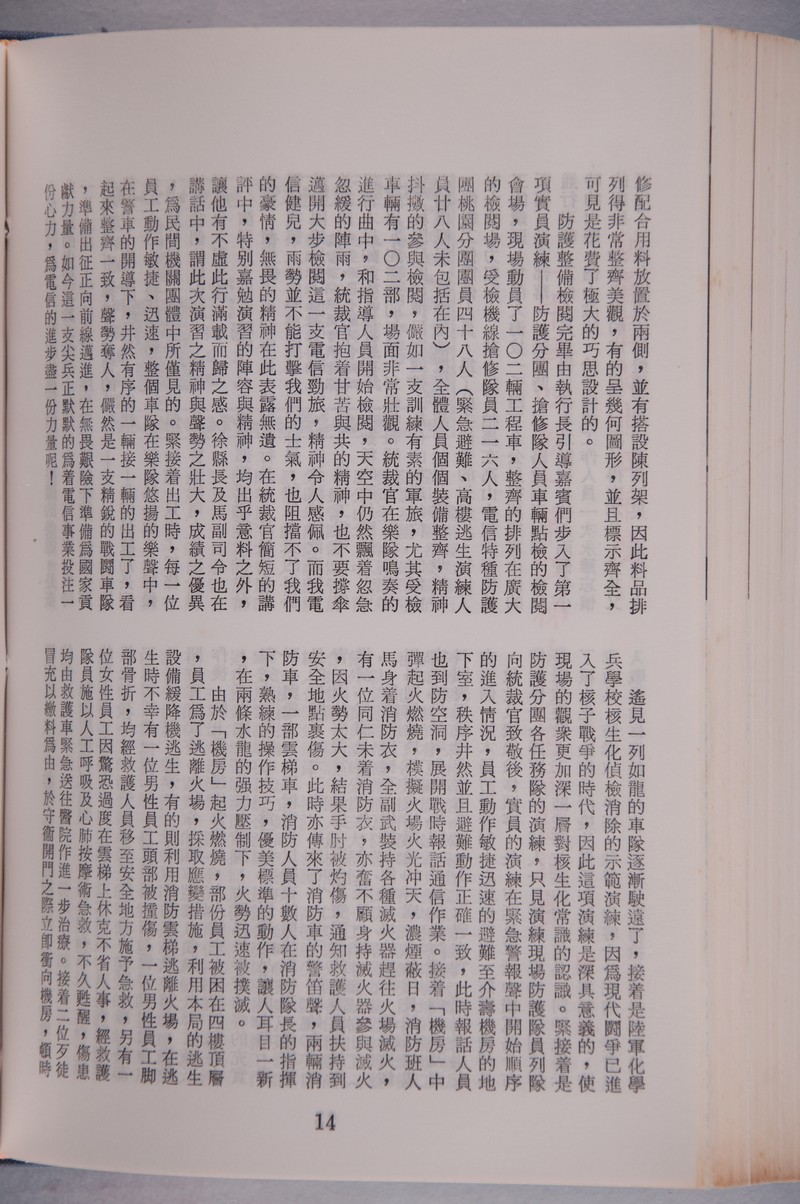 修配合用料放置於兩側，並有搭設陳列架，因此料品排
列得非常整齊美觀，有的呈幾何圖形，並且標示齊全，
可見是花費了極大的巧思設計的。
防護整備檢閱完畢由執行長引導嘉賓們步入了第一
項實員演練——防護分團、搶修隊人員車輛點檢的檢閱
會場，現場動員了一〇二輛工程車，整齊的排列在廣大
的檢閱場，受檢機線搶修隊員二一六人，電信特種防護
團桃園分團團員四十八人（緊急避難、高樓逃生演練人
員廿八人未包括在內），全體人員個個裝備整齊，精神
抖擻的參與檢閱，儼如一支訓練有素的軍旅，尤其受檢
車輛有一〇二部，場面非常壯觀。統裁官在樂隊鳴奏的
進行曲中，和指導人員開始檢閱，天空中仍然飄着忽急
忽緩的陣雨，統裁官抱着甘苦與共的精神，也不要撐傘
邁開大步檢閱這一支電信勁旅，精神令人感佩。而我電
信健兒，雨勢並不能打擊我們的士氣，也阻擋不了我們
的豪情，無畏的精神在此表露無遺。在統裁官簡短的講
評中，特別嘉勉演習的陣容與精神，均出乎意料之外，
讓他有不虛此行滿載而歸之感。徐縣長及馬副司令也在
講話中，謂此次演習之精神與聲勢之壯大，成績之優異
，爲民間機關團體中所僅見的。緊接着出工時，每一位
員工動作敏捷、迅速，整個車隊在樂隊悠揚的樂聲中，
在警車的開導下，井然有序的一輛接一輛的出工了，看
起來整齊一致，聲勢奪人，儼然是一支精銳的戰鬪車隊
，準備出征正向前線邁進，在無畏艱險下準備爲國家貢
獻力量。如今這一支尖兵正默默的爲着電信事業投注一
份心力，爲電信的進步盡一份力量呢！
遙見一列如龍的車隊逐漸駛遠了，接着是陸軍化學
兵學校核生化偵檢消除的示範演練，因爲現代鬪爭已進
入了核子戰爭的時代，因此這項演練是深具意義的，使
現場的觀衆更加深一層對核生化常識的認識。緊接着是
防護分團各任務隊的演練，只見演練現場防護隊員列隊
向統裁官致敬後，實員的演練在緊急警報聲中開始順序
的進入情況，員工動作敏捷迅速的避難至介壽機房的地
下室，秩序井然並且避難動作正確一致，此時報話人員
也到防空洞，展開戰時報話通信作業。接着「機房」中
彈起火燃燒，模擬火場火光冲天，濃煙蔽日，消防班人
馬身着消防衣，全副武裝持各種滅火器趕往火場滅火，
有一位同仁未着消防衣，亦奮不顧身持滅火器參與滅火
，因火勢太大，結果手肘被灼傷，通知救護人員扶持到
安全地點裹傷。此時亦傳來了消防車的警笛聲，兩輛消
防車，一部雲梯車，消防人員十數人在消防隊長的指揮
下，熟練的操作技巧，優美標準的動作，讓人耳目一新
，在兩條水龍的强力壓制下，火勢迅速被撲滅。
由於「機房」起火燃燒，部份員工被困在四樓頂層
，員工爲了逃離火場，採取應變措施，利用本局的逃生
設備緩降機逃生，有的則利用消防雲梯逃離火場，在逃
生時不幸有一位男性員工頭部被撞傷，一位男性員工脚
部骨折，均經救護人員移至安全地方施予急救，另有一
位女性員工因驚恐過度在雲梯上休克不省人事，經救護
隊員施以人工呼吸及心肺按摩術急救，不久甦醒，傷患
均由救護車緊急送往醫院作進一步治療。接着二位歹徒
冒充以繳料爲由，於守衞開門之際立卽衝向機房，頓時
14